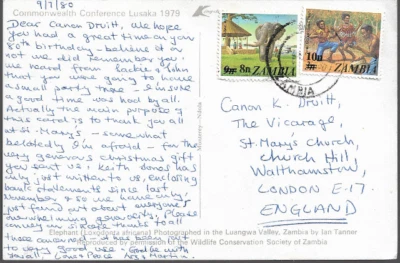 9/7/80
Commonwealth Conference Lusaka 1979
Dear Canon Druitt, We hope
you had a great time on your
80th birthday - believe it or
not we did remember you! We
heard from Jackie & John
that you were going to have
a small party there - I'm sure
a good time was had by all.
Actually the main purpose of
this card is to thank you all
at St-Mary's - somewhat
belatedly I'm afraid - for the
very generous christmas gift
you sent us; Keith Jones has
only just written to us, enclosing
bank statements since last
November & so we have only
just found out about everyone's
overwhelming generosity. Please
convey our sincere thanks to all
those concerned - it has been put
to very good use. God be with
you all. Love & Peace Martin.
9n 8n ZAMBIA
10n
ZAMBIA
ZAMBIA
Canon K. Druitt,
The Vicarage,
St. Mary's Church,
Church Hill,
Walthamstow,
LONDON E-17.
ENGLAND
Elephant (Loxodonta africana) Photographed in the Luangwa Valley, Zambia by Ian Tanner
Reproduced by permission of the Wildlife Conservation Society of Zambia